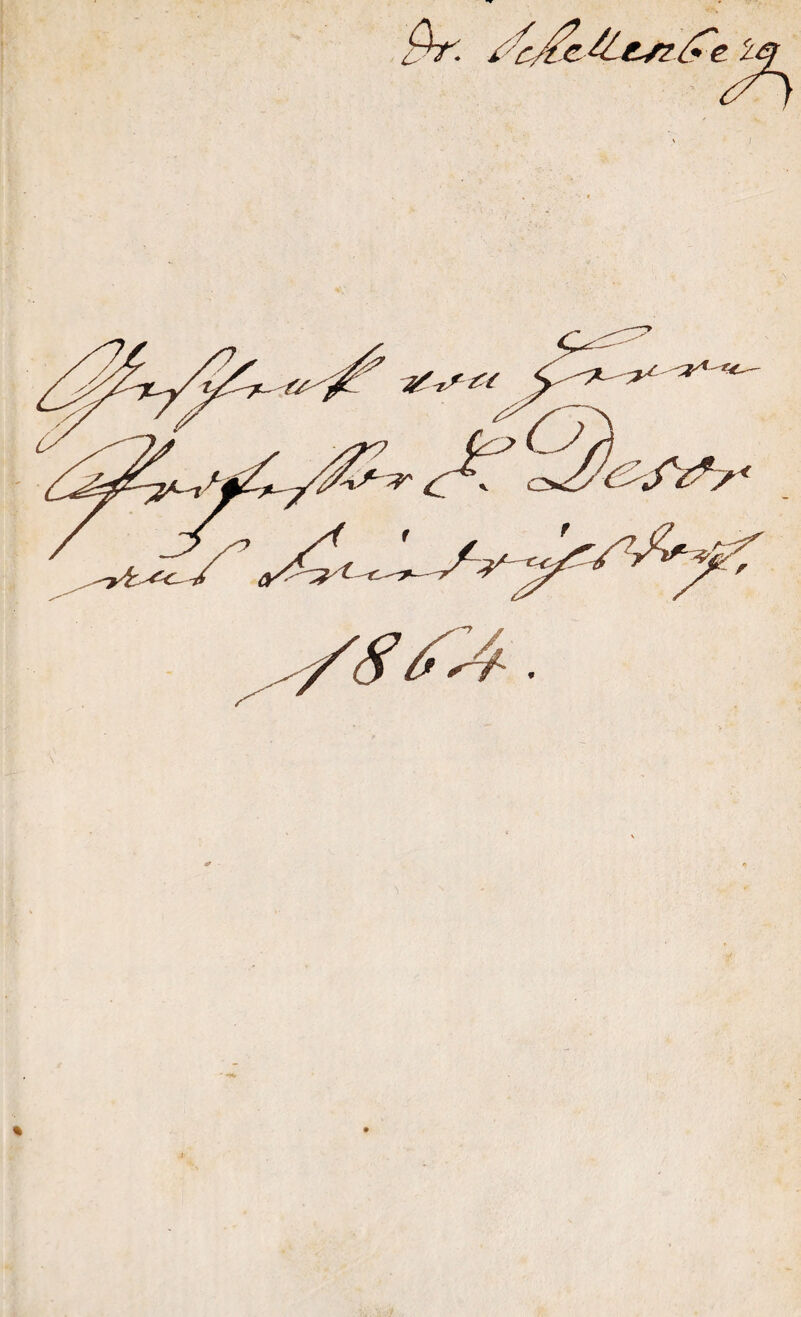 Dr. Schellenberg
Geschenk von Herrn
Professor E. Desor
aus Friedrichsdorf.
1864.